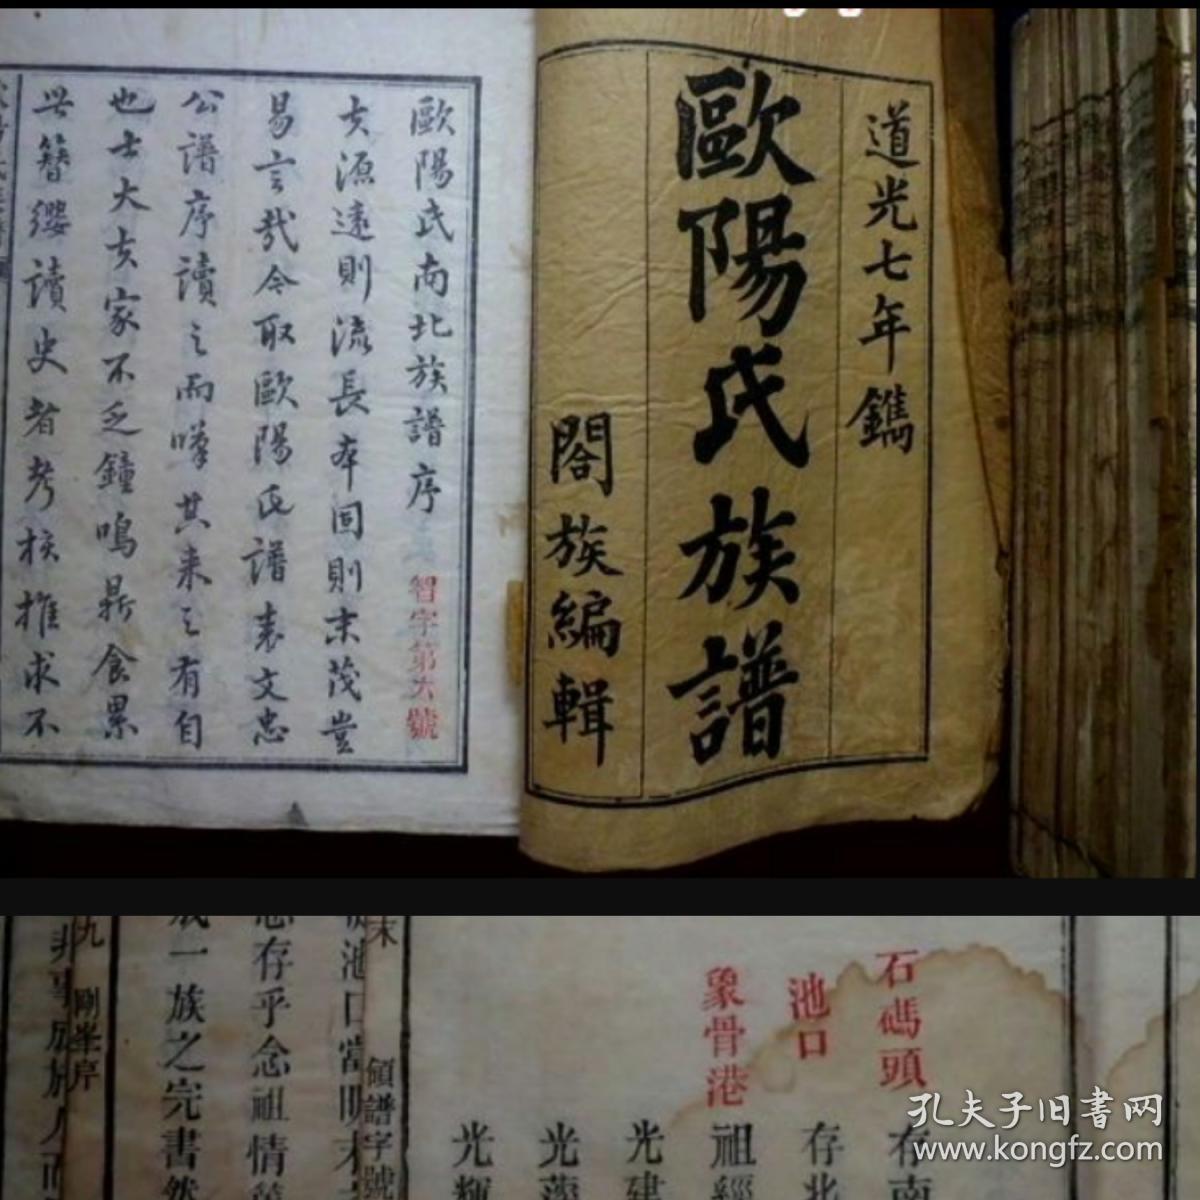 道光七年鐫
歐陽氏族譜
閤族編輯
歐陽氏南北族譜序
智字第六號
夫源遠則流長本固則末茂豈
易言哉今取歐陽氏譜表文忠
公譜序讀之而嘆其来之有自
也士大夫家不乏鐘鳴鼎食累
世簪纓讀史者考核推求不
石碼頭
存南
池口
存北
象骨港
祖經
光建
光藻
光輝
末
領譜字號
池口當明末
存乎念祖情
成一族之完書然
九
剛峯序
孔夫子旧書网
www.kongfz.com